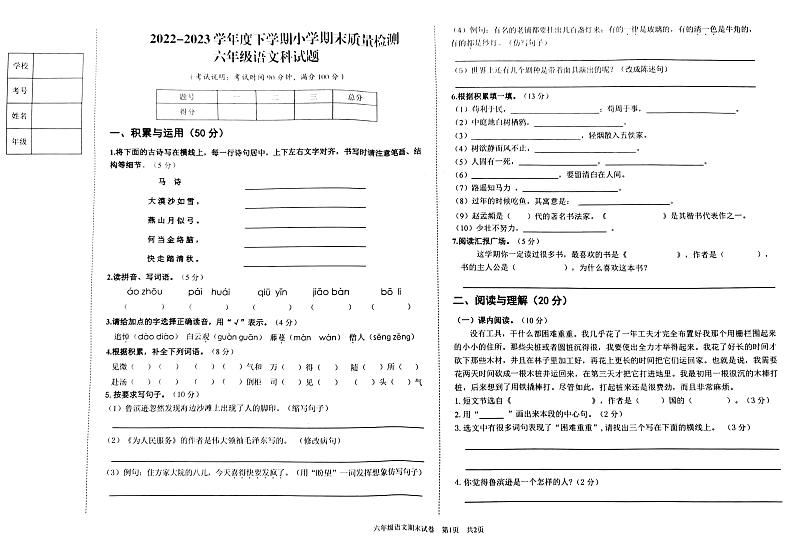 2022-2023学年度下学期小学期末质量检测
六年级语文科试题
(考试说明:考试时间90分钟,满分100分)
学校
考号
姓名
年级
题号 一 二 三 总分
得分
一、积累与运用(50分)
1.将下面的古诗写在横线上,每一行诗句居中,上下左右文字对齐,书写时请注意笔画、结
构等细节。(5分)
马 诗
大漠沙如雪,
燕山月似弓。
何当金络脑,
快走踏清秋。
2.读拼音、写词语。(5分)
áo zhōu pái huái qiū yǐn jiāo bàn bō li
( ) ( ) ( ) ( ) ( )
3.请给加点的字选择正确读音,用“√”表示。(4分)
追悼(dāo diào) 白云观(guàn guān) 藤蔓(màn wàn) 僧人(sēng zēng)
4.根据积累,补全下列词语。(8分)
见微( )( ) ( )( )气和 万( )得( ) 随( )所( )
赴汤( )( ) ( )( )倒柜 司( )见( ) ( )头( )气
5.按要求写句子。(10分)
(1)鲁滨逊忽然发现海边沙滩上出现了人的脚印。(缩写句子)
(2)《为人民服务》的作者是伟大领袖毛泽东写的。(修改病句)
(3)例句:住方家大院的八儿,今天喜得快要发疯了。(用“盼望”一词发挥想象仿写句子)
(4)例句:有名的老铺都要挂出几百盏灯来:有的一律是玻璃的,有的清一色是牛角的,
有的都是纱灯。(仿写句子)
(5)世界上还有几个剧种是带着面具演出的呢?(改成陈述句)
6.根据积累填一填。(13分)
(1)苟利于民, ;苟周于事, 。
(2)中庭地白树栖鸦, 。
(3) ,轻烟散入五侯家。
(4)树欲静而风不止, 。
(5)人固有一死, , 。
(6) ,要留清白在人间。
(7)路遥知马力 , 。
(8)过年的时候吃鱼,其寓意是: 。
(9)赵孟頫是( )代的著名书法家。《 》是其楷书代表作之一。
(10)少壮不努力, 。
7.阅读汇报广场。(5分)
这学期你一定读过很多书,最喜欢的书是《 》,作者是( ),
书的主人公是( ),为什么喜欢这本书?
二、阅读与理解(20分)
(一)课内阅读。(10分)
没有工具,干什么都困难重重。我几乎花了一年工夫才完全布置好我那个用栅栏围起来
的小小的住所。那些尖桩或者圆桩沉得很,我要使出全力才举得起来。我花了好长的时间才
砍下那些木材,并且在林子里加工好,再花上更长的时间把它们运回家。也就是说,我需要
花两天时间砍成一根木桩并运回来,在第三天才把它打进地里。我最初用一根很沉的木棒打
桩,后来想到了用铁撬棒打。尽管如此,打起桩来还是很费劲,而且非常麻烦。
1.短文节选自《 》,作者是( )国的( )。(3分)
2.用“ ”画出来本段的中心句。(2分)
3.选文中有很多词句表现了“困难重重”,请找出三个写在下面的横线上。(3分)
4.你觉得鲁滨逊是一个怎样的人?(2分)
六年级语文期末试卷 第1页 共2页